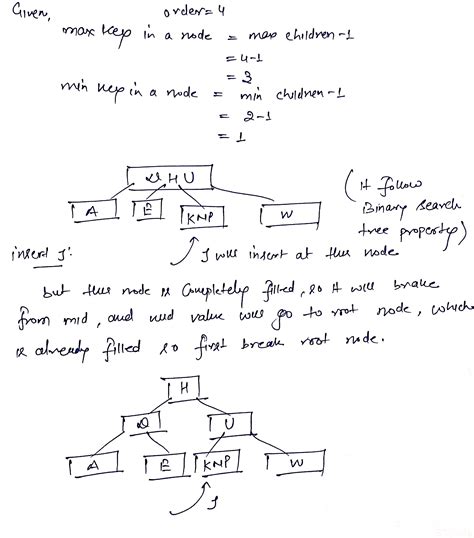 Given, order=4
max key in a node = max children-1
= 4-1
= 3
min key in a node = min children-1
= 2-1
= 1
D H U
A E KNP W
(It follow
Binary search
tree property)
insert J: J will insert at this node
but this node is completely filled, so it will brake
from mid, and mid value will go to root node, which
is already filled so first break root node.
H
D U
A E KNP W
J